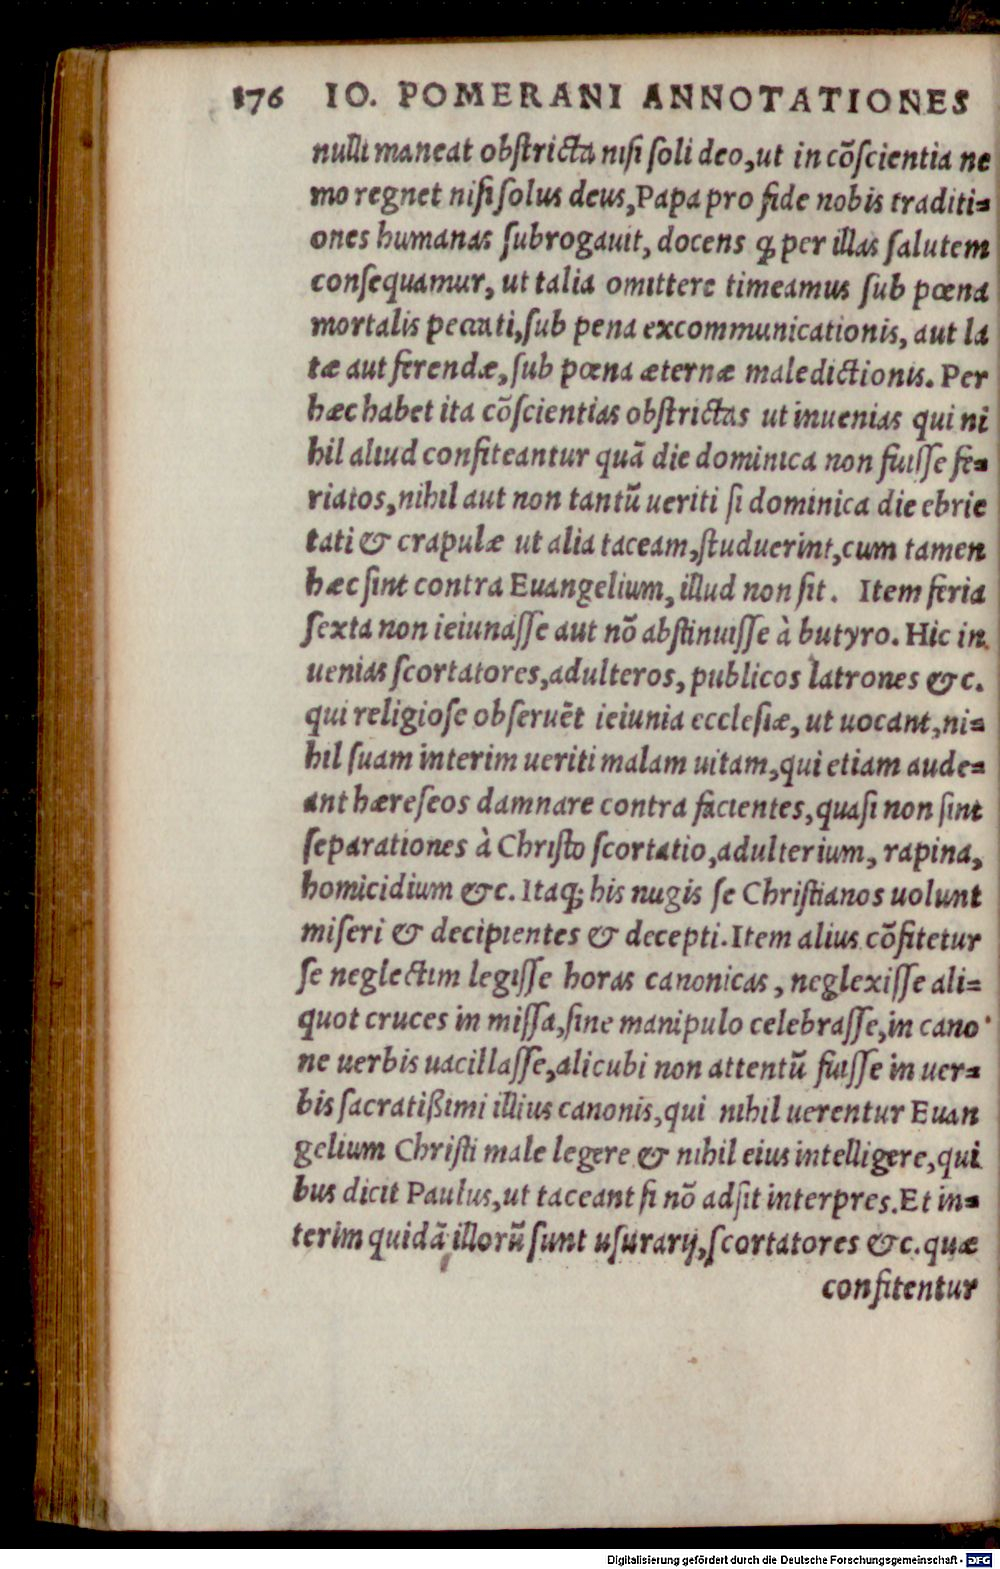 176 IO. POMERANI ANNOTATIONES
nulli maneat obſtricta niſi ſoli deo, ut in cõſcientia ne
mo regnet niſi ſolus deus, Papa pro fide nobis traditi=
ones humanas ſubrogauit, docens ꝙ per illas ſalutem
conſequamur, ut talia omittere timeamus ſub pœna
mortalis peccati, ſub pena excommunicationis, aut la
tæ aut ferendæ, ſub pœna æternæ maledictionis. Per
hæc habet ita cõſcientias obſtrictas ut inuenias qui ni
hil aliud confiteantur quã die dominica non fuiſſe fe=
riatos, nihil aut non tantũ ueriti ſi dominica die ebrie
tati & crapulæ ut alia taceam, ſtuduerint, cum tamen
hæc ſint contra Euangelium, illud non ſit. Item feria
ſexta non ieiunaſſe aut nõ abſtinuiſſe à butyro. Hic in
uenias ſcortatores, adulteros, publicos latrones &c.
qui religioſe obſeruẽt ieiunia eccleſiæ, ut uocant, ni=
hil ſuam interim ueriti malam uitam, qui etiam aude=
ant hæreſeos damnare contra facientes, quaſi non ſint
ſeparationes à Chriſto ſcortatio, adulterium, rapina,
homicidium &c. Itaq; his nugis ſe Chriſtianos uolunt
miſeri & decipientes & decepti. Item alius cõfitetur
ſe neglectim legiſſe horas canonicas, neglexiſſe ali=
quot cruces in miſſa, ſine manipulo celebraſſe, in cano
ne uerbis uacillaſſe, alicubi non attentũ fuiſſe in uer=
bis ſacratißimi illius canonis, qui nihil uerentur Euan
gelium Chriſti male legere & nihil eius intelligere, qui
bus dicit Paulus, ut taceant ſi nõ adſit interpres. Et in=
terim quidã illorũ ſunt uſurarij, ſcortatores &c. quæ
confitentur
Digitalisierung gefördert durch die Deutsche Forschungsgemeinschaft - DFG